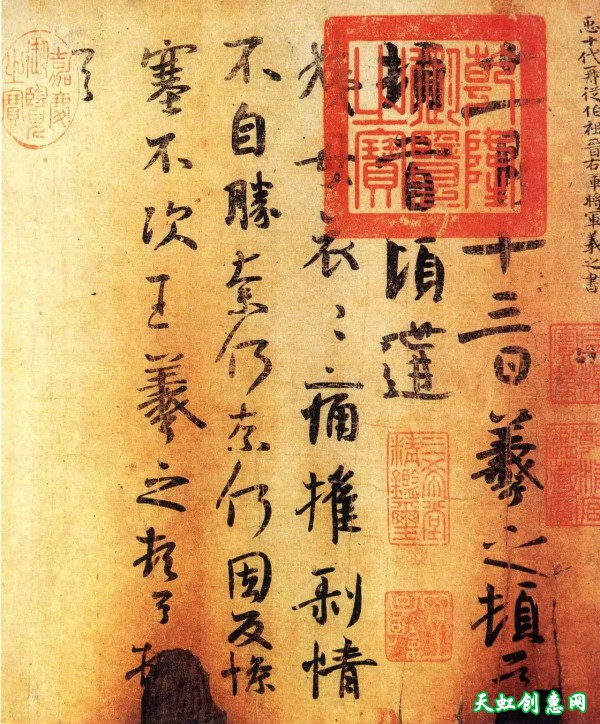 十代再從伯祖晉右軍將軍羲之書
十一月十三日羲之頓首
頓首頃遘
姨母哀〻痛摧剝情
不自勝奈何奈何因反慘
塞不次王羲之頓首頓
首
乾隆御覽之寶
嘉慶御覽之寶
三希堂精鑑璽
宜子孫
天虹创惠网